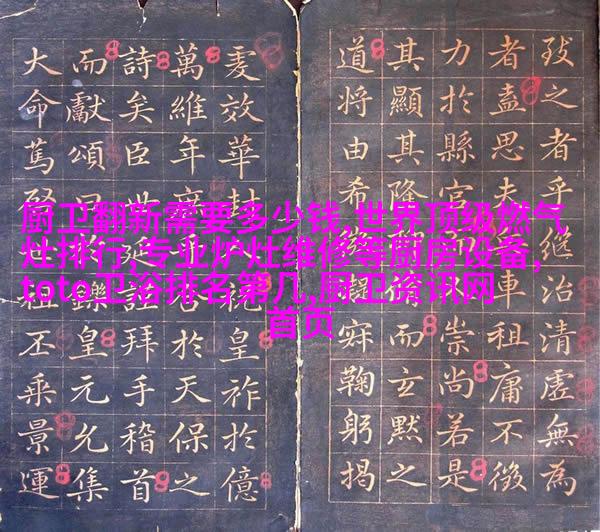 之者乎治清虛無為
者盍思夫車祖庸不徵
力於縣官崇尚若是
其顯其降而玄默之
道將由希寐鞠躬揭
效華封祝皇祚於億
萬維年於天保之
詩矣臣世拜手稽首
而獻頌曰皇元允集
大命篤祖丕乘景運
厨卫翻新需要多少钱,世界顶级燃气
灶排行,专业炉灶维修等厨房设备,
toto卫浴排名第几,厨卫资讯网
首页